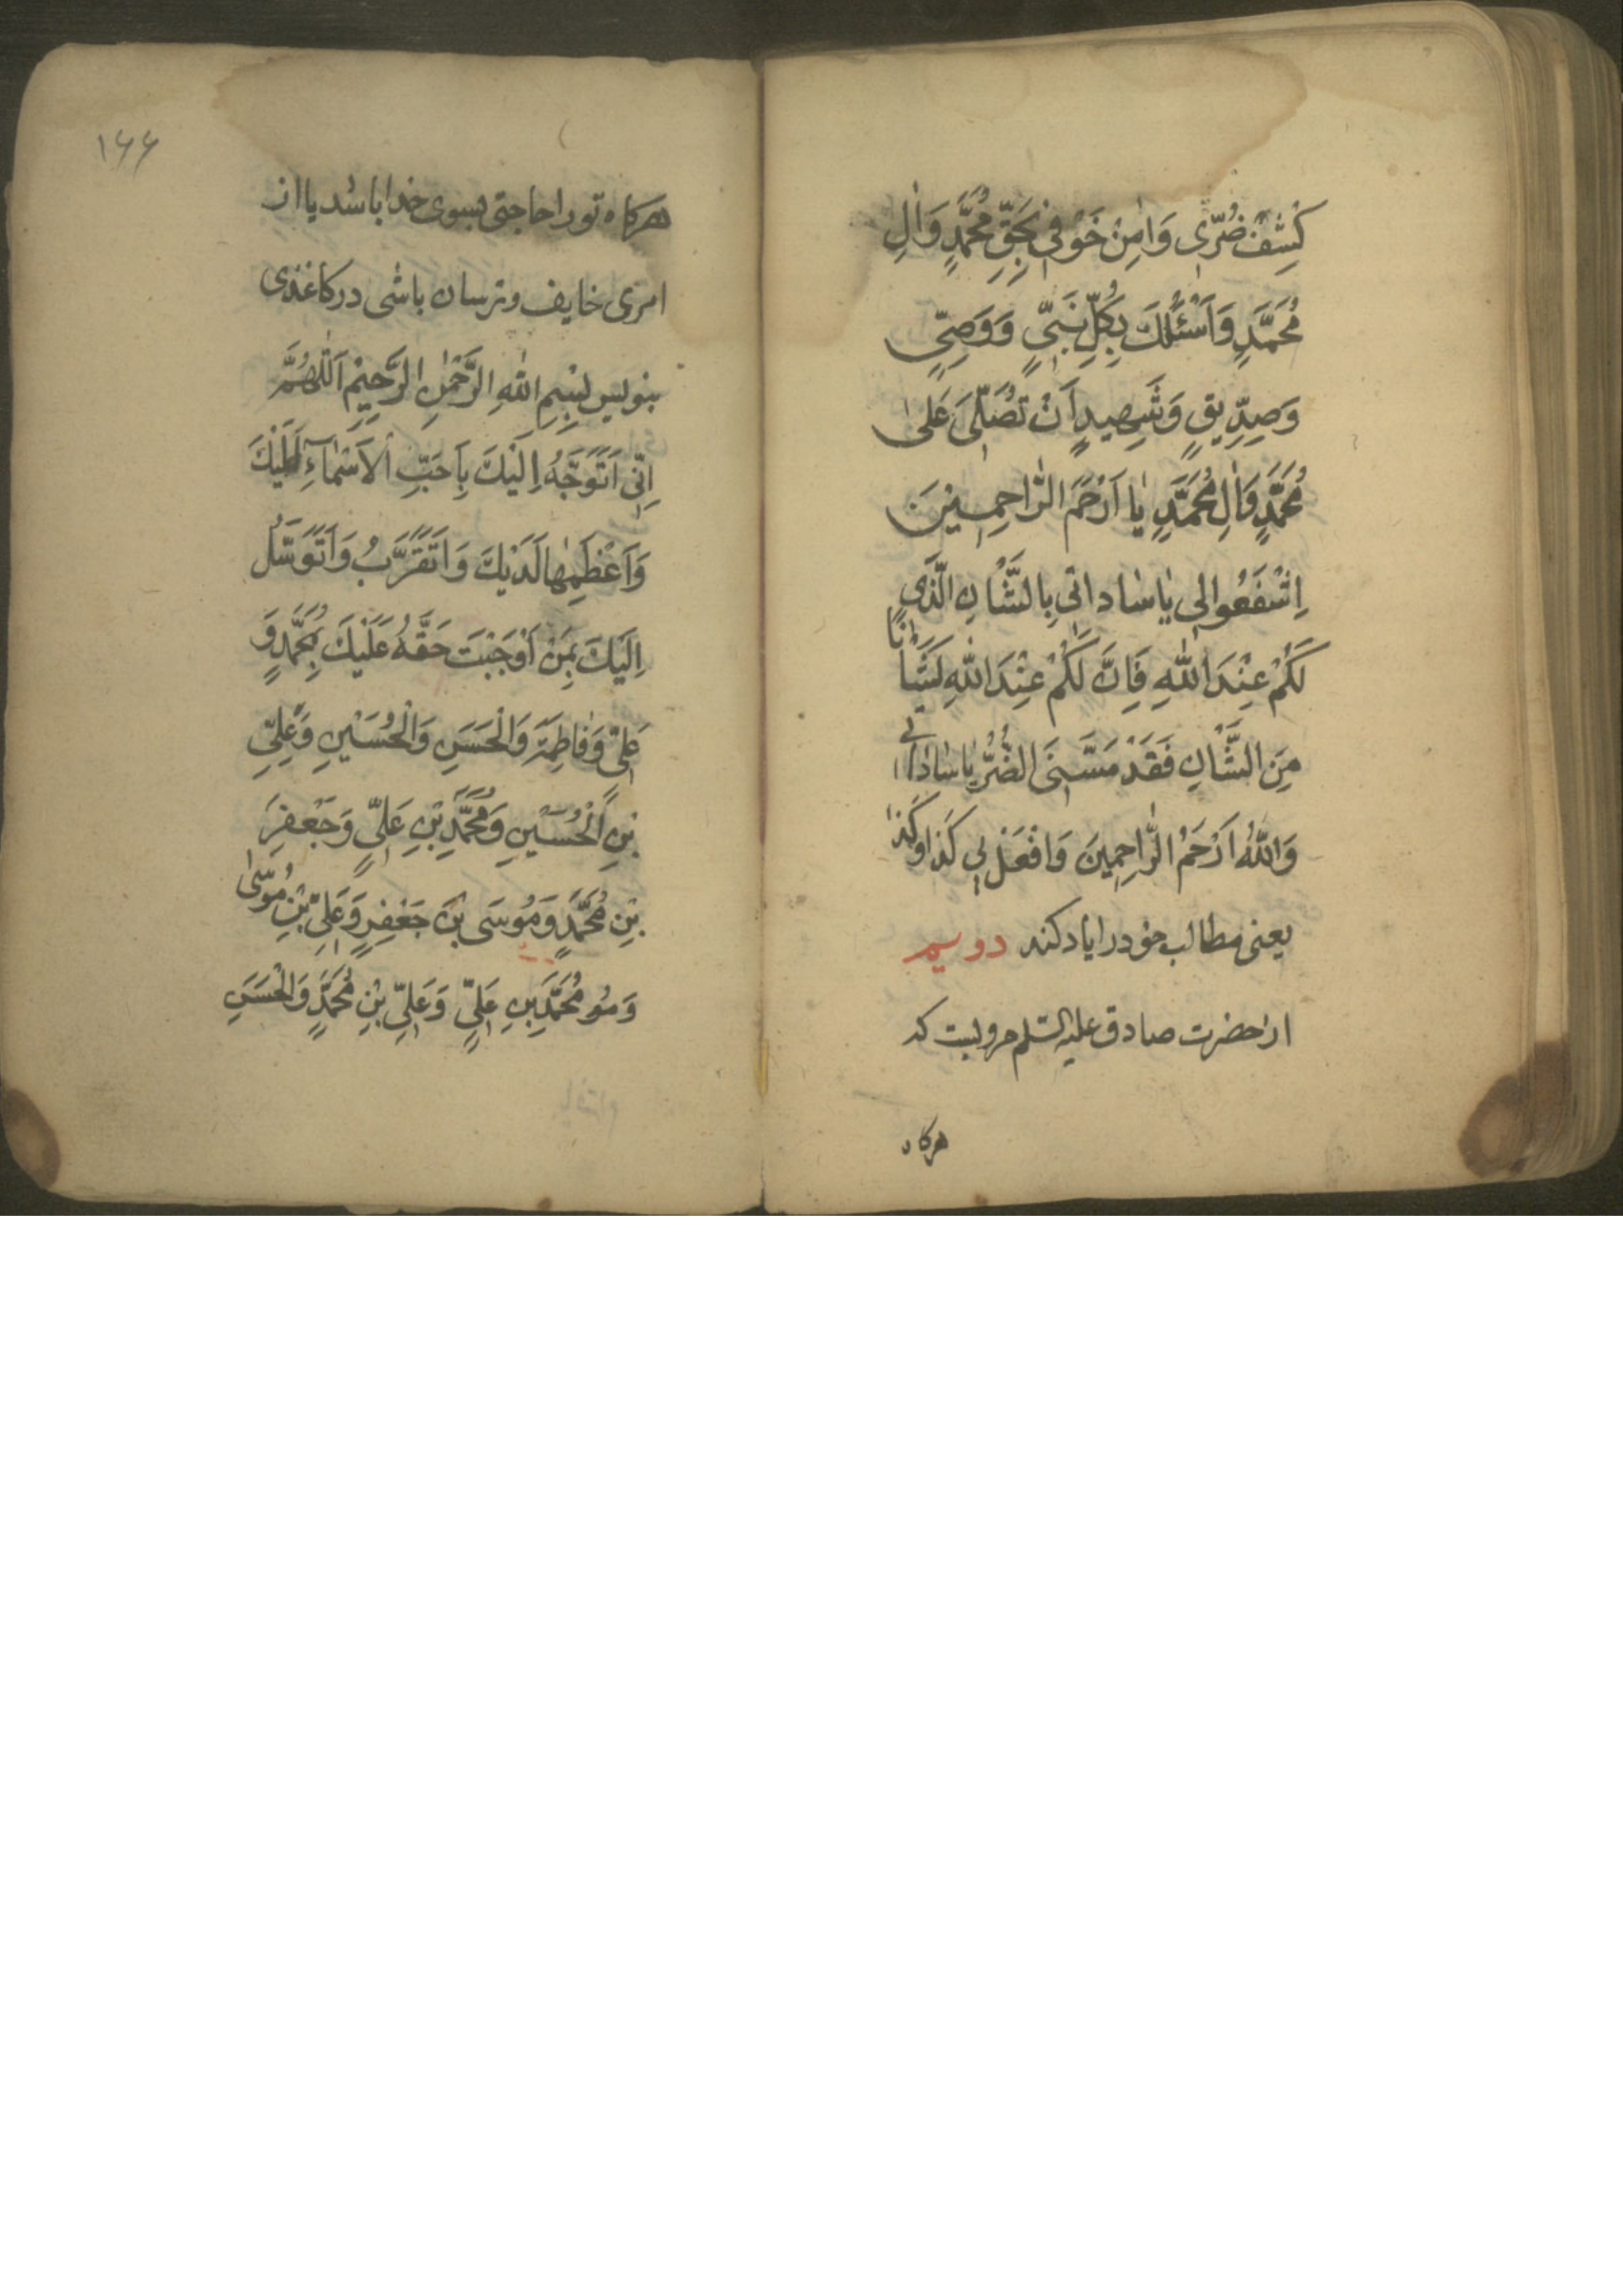 كَشْفَ ضُرّى وَامِنْ خَوْفى بِحَقِّ مُحَمَّدٍ وَالِ
مُحَمَّدٍ وَاَسْئَلُكَ بِكُلِّ نَبِىٍّ وَوَصِىٍّ
وَصِدّيقٍ وَشَهيدٍ اَنْ تُصَلِّىَ عَلىٰ
مُحَمَّدٍ وَالِ مُحَمَّدٍ يٰا اَرْحَمَ الرّٰاحِمينَ
اِشْفَعُوا لى يٰا سٰاداتى بِالشَّاْنِ الَّذى
لَكُمْ عِنْدَ اللّٰهِ فَاِنَّ لَكُمْ عِنْدَ اللّٰهِ لَشَاْنًا
مِنَ الشَّاْنِ فَقَدْ مَسَّنِىَ الضُّرُّ يٰا سٰادٰاتى
وَاللّٰهُ اَرْحَمُ الرّٰاحِمينَ وَافْعَلْ لى كَذا وَكَذا
يعنى مطالب خود را ياد كند دويم
از حضرت صادق عليه السلم مرويست كه
هركاه
١۶۶
هركاه تو را حاجتى بسوى خدا باشد يا از
امرى خايف و ترسان باشى در كاغذى
بنويس بِسْمِ اللّٰهِ الرَّحْمٰنِ الرَّحيْمِ اَللّٰهُمَّ
اِنّى اَتَوَجَّهُ اِلَيْكَ بِاَحَبِّ الْاَسْمٰآءِ اِلَيْكَ
وَاَعْظَمِهٰا لَدَيْكَ وَاَتَقَرَّبُ وَاَتَوَسَّلُ
اِلَيْكَ بِمَنْ اَوْجَبْتَ حَقَّهُ عَلَيْكَ بِمُحَمَّدٍ وَ
عَلِىٍّ وَفٰاطِمَةَ وَالْحَسَنِ وَالْحُسَيْنِ وَعَلِىِّ
بْنِ الْحُسَيْنِ وَمُحَمَّدِ بْنِ عَلِىٍّ وَجَعْفَرِ
بْنِ مُحَمَّدٍ وَمُوسَى بْنِ جَعْفَرٍ وَعَلِىِّ بْنِ مُوسىٰ
وَمُو مُحَمَّدِ بْنِ عَلِىٍّ وَعَلِىِّ بْنِ مُحَمَّدٍ وَالْحَسَنِ